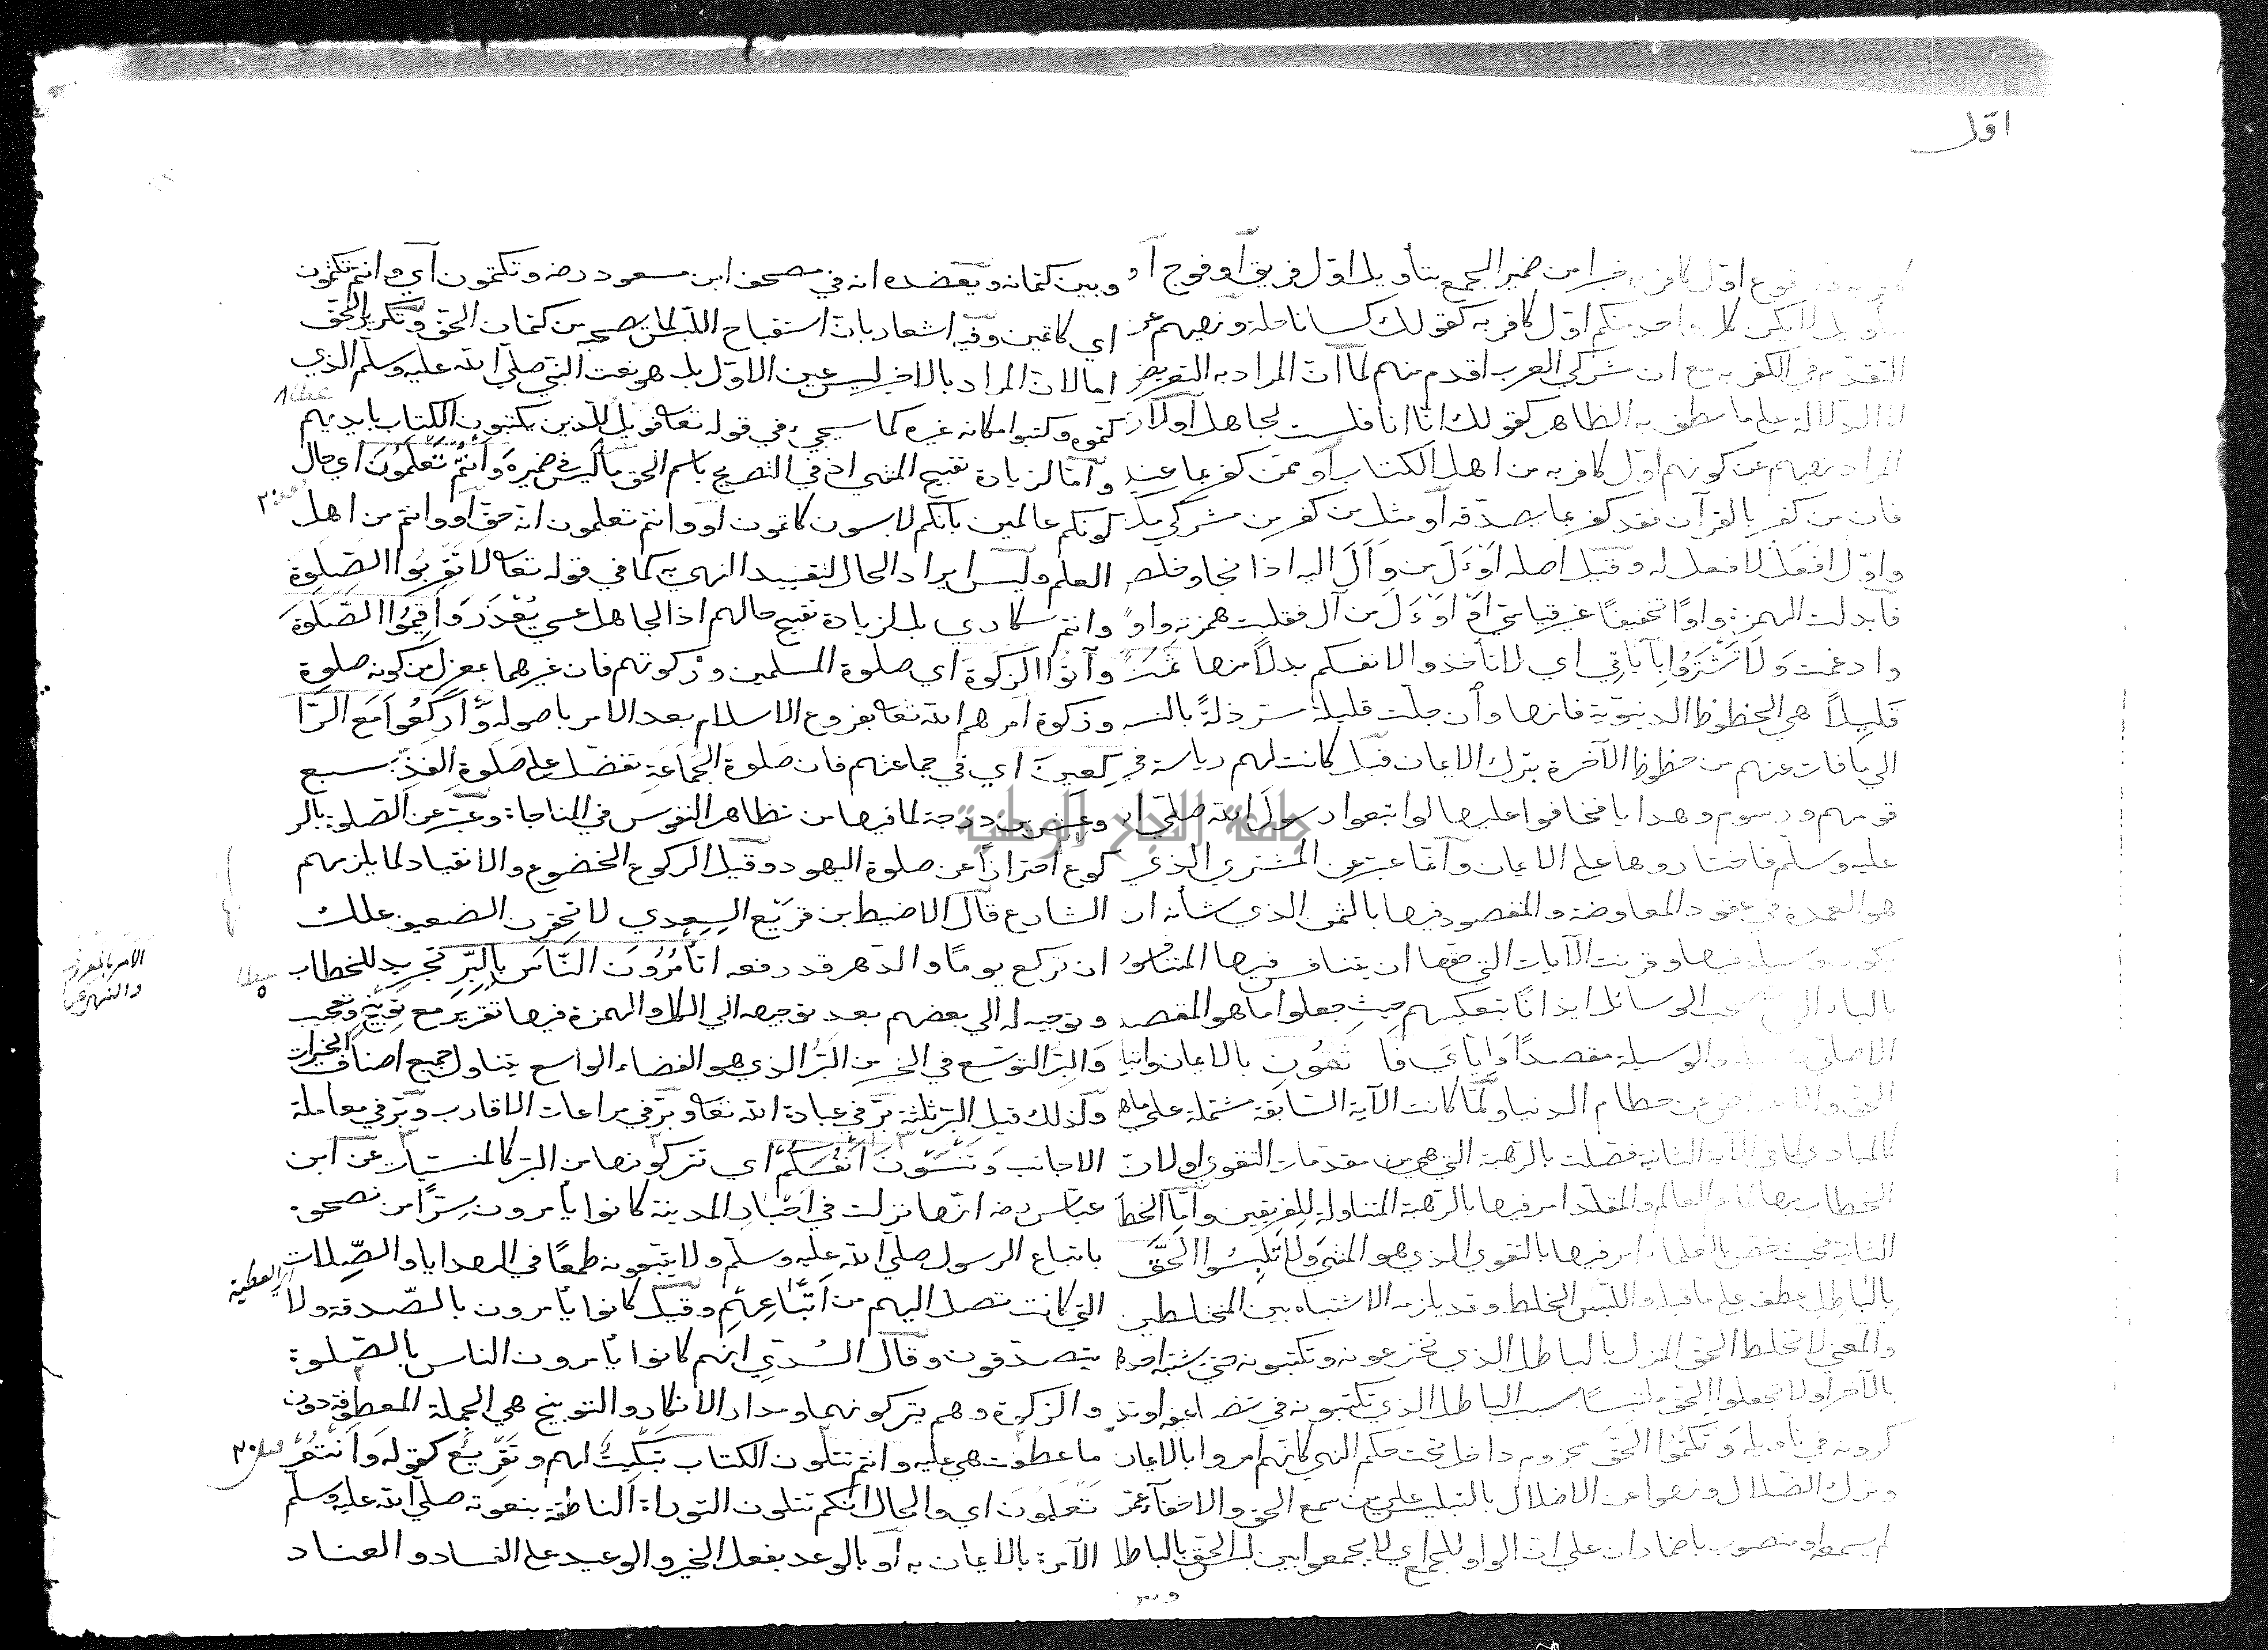 اول
وقوع اول كافر به خبرا من ضمير الجمع بتأويل اول فريق او فوج او
بتأويل لا يكن كل واحد منكم اول كافر به كقولك كسانا حلة ونهيهم عن
التقدم في الكفر به مع ان مشركي العرب اقدم منهم لما ان المراد به التعريض
لا الدلالة على ما نطق به الظاهر كقولك اما انا فلست بجاهل او لان
المراد نهيهم عن كونهم اول كافر به من اهل الكتاب او ممن كفر بما عند
فان من كفر بالقرآن فقد كفر بما يصدقه او مثل من كفر من مشركي مكة
واول افعل لا فعل له وقيل اصله اوءل من وأل اليه اذا نجا وخلص
فابدلت الهمزة واوا تخفيفا غير قياسي او اوءل من آل فقلبت همزته واوا
وادغمت ولا تشتروا بآياتي اي لا تأخذوا لانفسكم بدلا منها ثمنا
قليلا هي الحظوظ الدنيوية فانها وان جلت قليلة مسترذلة بالنسبة
الى ما فات عنهم من حظوظ الآخرة بترك الايمان قيل كانت لهم رياسة في
قومهم ورسوم وهدايا فخافوا عليها لو اتبعوا رسول الله صلى الله
عليه وسلم فاختاروها على الايمان وانما عبر عن المشترى الذي
هو العمدة في عقود المعاوضة والمقصود فيها بالثمن الذي شأنه ان
يكون وسيلة فيها وقرنت الآيات التي حقها ان يتنافس فيها المتنافسون
بالباء التي تصحب الوسائل ايذانا بتعكيسهم حيث جعلوا ما هو المقصد
الاصلي وسيلة والوسيلة مقصدا واياي فاتقون بالايمان واتباع
الحق والاعراض عن حطام الدنيا ولما كانت الآية السابقة مشتملة على ما هو
كالمبادي لما في الآية الثانية فصلت بالرهبة التي هي من مقدمات التقوى او لان
الخطاب بها لما عم العالم والمقلد امر فيها بالرهبة المتناولة للفريقين واما الخطاب
بالثانية فحيث خص بالعلماء امر فيها بالتقوى الذي هو المنتهى ولا تلبسوا الحق
بالباطل عطف على ما قبله واللبس الخلط وقد يلزمه الاشتباه بين المختلطين
والمعنى لا تخلطوا الحق المنزل بالباطل الذي تخترعونه وتكتبونه حتى يشتبه احدهما
بالآخر او لا تجعلوا الحق ملتبسا بسبب الباطل الذي تكتبونه في تضاعيفه او تذ
كرونه في تأويله وتكتموا الحق مجزوم داخل تحت حكم النهي كانهم امروا بالايمان
وترك الضلال ونهوا عن الاضلال بالتلبيس على من سمع الحق والاخفاء عمن
لم يسمعه او منصوب باضمار ان على ان الواو للجمع اي لا تجمعوا بين لبس الحق بالباطل
وبين كتمانه ويعضده انه في مصحف ابن مسعود رضه وتكتمون اي وانتم تكتمون
اي كاتمين وفيه اشعار بان استقباح اللبس لما يصحبه من كتمان الحق وتكرير الحق
اما لان المراد بالاخير ليس عين الاول بل هو نعت النبي صلى الله عليه وسلم الذي
كتموه وكتبوا مكانه غيره كما سيجيء في قوله تعا فويل للذين يكتبون الكتاب بايديهم
واما لزيادة تقبيح المنهي اذ في التصريح باسم الحق ما ليس في ضميره وانتم تعلمون اي حال
كونكم عالمين بانكم لابسون كاتمون او وانتم تعلمون انه حق او وانتم من اهل
العلم وليس ايراد الحال لتقييد النهي به كما في قوله تعا لا تقربوا الصلوة
وانتم سكارى بل لزيادة تقبيح حالهم اذ الجاهل عسى يعذر واقيموا الصلوة
وآتوا الزكوة اي صلوة المسلمين وزكوتهم فان غيرهما بمعزل من كونه صلوة
وزكوة امرهم الله تعا بفروع الاسلام بعد الامر باصوله واركعوا مع الرا
كعين اي في جماعتهم فان صلوة الجماعة تفضل على صلوة الفذ بسبع
وعشرين درجة لما فيها من تظاهر النفوس في المناجاة وعبر عن الصلوة بالر
كوع احترازا عن صلوة اليهود وقيل الركوع الخضوع والانقياد لما يلزمهم
الشارع قال الاضبط بن قريع السعدي لا تحقرن الضعيف علك
ان تركع يوما والدهر قد رفعه اتأمرون الناس بالبر تجريد للخطاب
وتوجيه له الى بعضهم بعد توجيهه الى الكل والهمزة فيها تقرير مع توبيخ وتعجيب
والبر التوسع في الخير من البر الذي هو الفضاء الواسع يتناول جميع اصناف الخيرات
ولذلك قيل البر ثلثة بر في عبادة الله تعا وبر في مراعات الاقارب وبر في معاملة
الاجانب وتنسون انفسكم اي تتركونها من البر كالمنسيات عن ابن
عباس رضه انها نزلت في احبار المدينة كانوا يأمرون سرا من نصحوه
باتباع الرسول صلى الله عليه وسلم ولا يتبعونه طمعا في الهدايا والصلات
التي كانت تصل اليهم من اتباعهم وقيل كانوا يأمرون بالصدقة ولا
يتصدقون وقال السدي انهم كانوا يأمرون الناس بالصلوة
والزكوة وهم يتركونهما ومدار الانكار والتوبيخ هي الجملة المعطوفة دون
ما عطفت هي عليه وانتم تتلون الكتاب تبكيت لهم وتقريع كقوله وانتم
تعلمون اي والحال انكم تتلون التوراة الناطقة بنعوته صلى الله عليه وسلم
الآمرة بالايمان به او بالوعد بفعل الخير والوعيد على الفساد والعناد
العطية
الامر بالمعروف
جامعة النجاح الوطنية